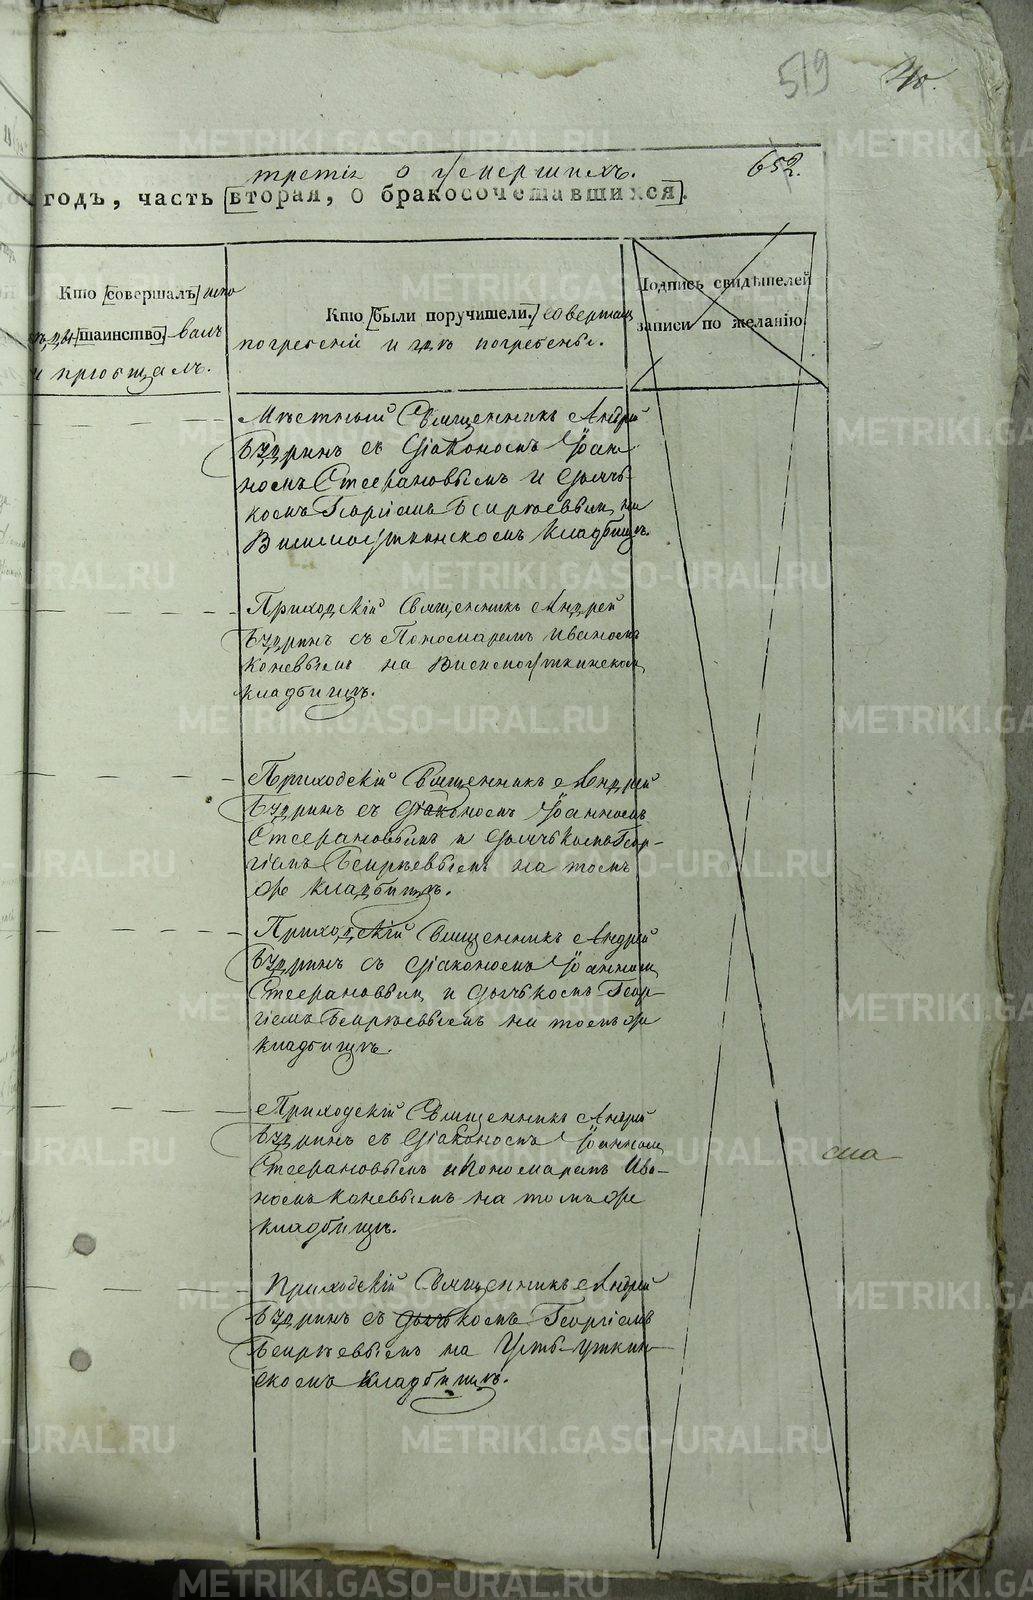 519
652.
третія о умершихъ.
годъ, часть вторая, о бракосочетавшихся.
Кто совершалъ испо
таинство. валъ
и пріобщалъ.
Кто были поручители. совершал
погребеніе и гдѣ погребены.
Подпись свидѣтелей
записи по желанію.
Мѣстный Священникъ Андрей
Будринъ съ Діакономъ Іоан
номъ Стефановымъ и Дьячь
комъ Георгіемъ на
Висимоуткинскомъ кладбищѣ.
Приходскій Священникъ Андрей
Будринъ съ Пономаремъ Иваномъ
Коневымъ на Висимоуткинскомъ
кладбищѣ.
Приходскій Священникъ Андрей
Будринъ съ Діакономъ Іоанномъ
Стефановымъ и Дьячькомъ Геор-
гіемъ на томъ
же кладбищѣ.
Приходскій Священникъ Андрей
Будринъ съ Діакономъ Іоанномъ
Стефановым и Дьячькомъ Геор-
гіемъ на томъ же
кладбищѣ.
Приходскій Священникъ Андрей
Будринъ съ Діакономъ Іоанномъ
Стефановымъ и Пономаремъ Ива-
номъ Коневымъ на томъ же
кладбищѣ.
Приходскій Священникъ Андрей
Будринъ съ Дьячькомъ Георгіемъ
на Усть-Уткин
скомъ кладбищѣ.
METRIKI.GASO-URAL.RU